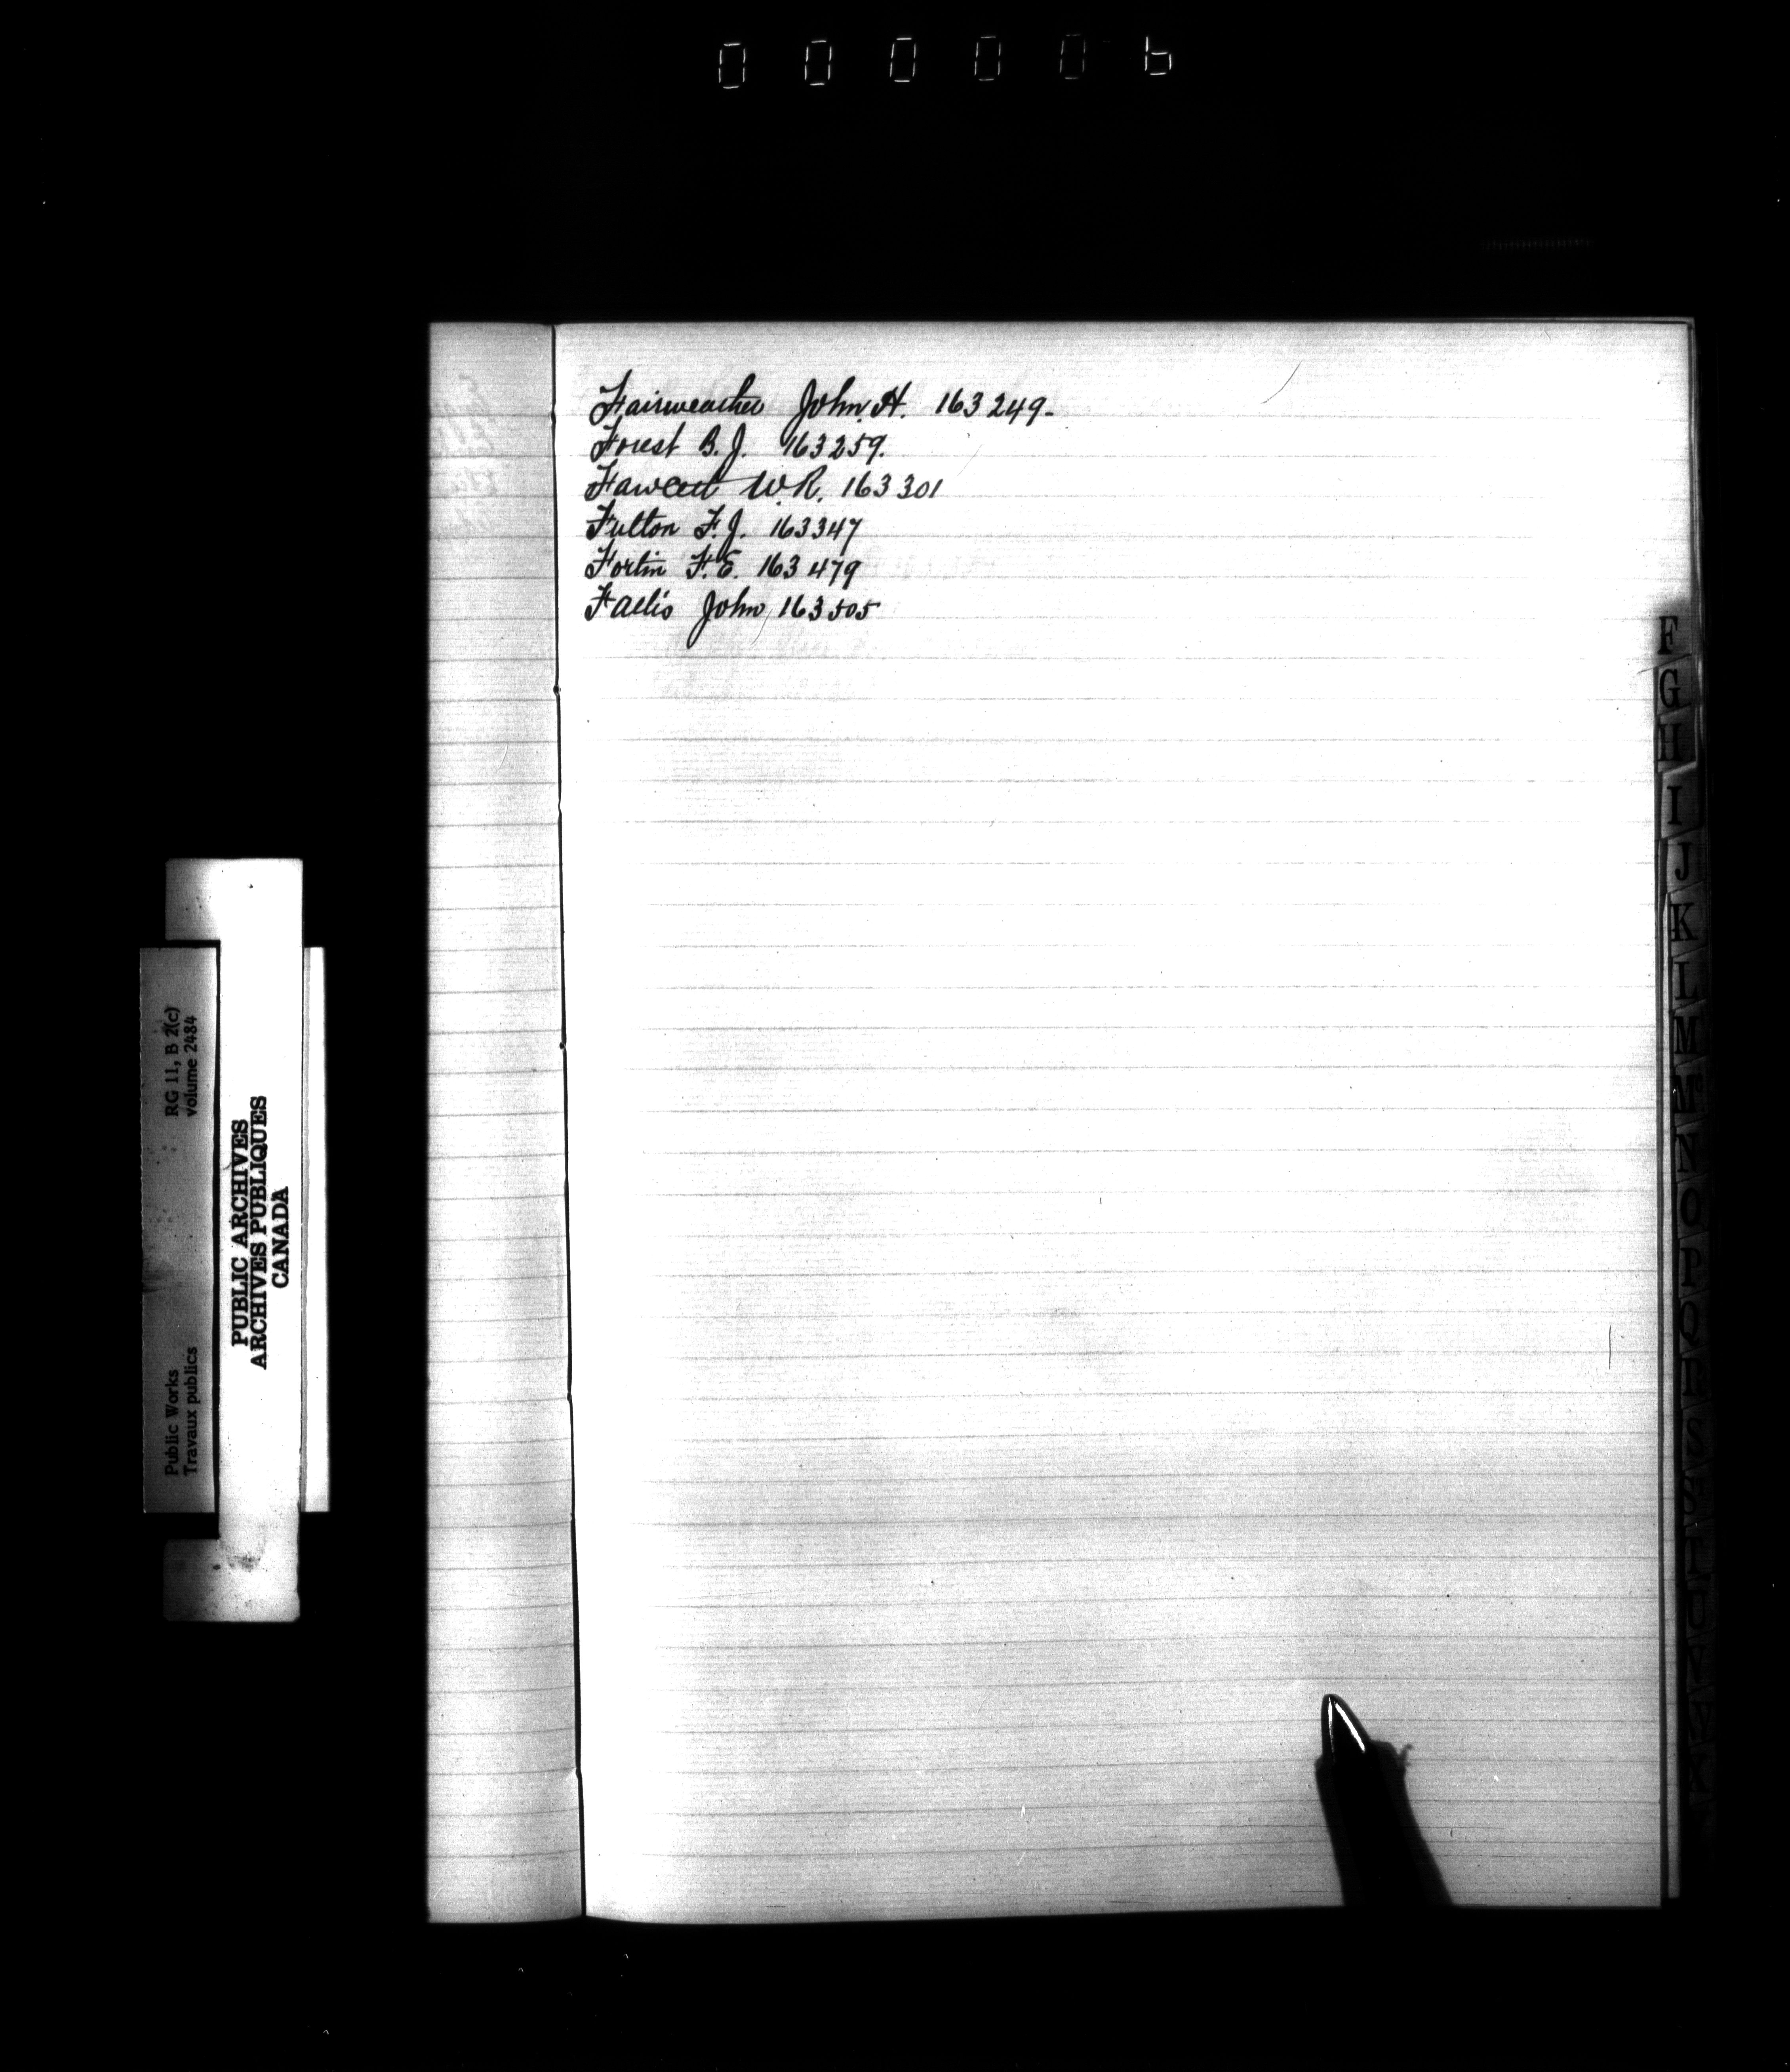 000006
Fairweather John H. 163249-
Forest B. J. 163259.
Fawcett W. R. 163301
Fulton F. J. 163347
Fortin F. E. 163479
Fallis John 163505
F
G
H
I
J
K
L
M
Mc
N
O
P
Q
R
S
T
U
V
W
RG 11, B 2(c)
volume 2484
Public Works
Travaux publics
PUBLIC ARCHIVES
ARCHIVES PUBLIQUES
CANADA